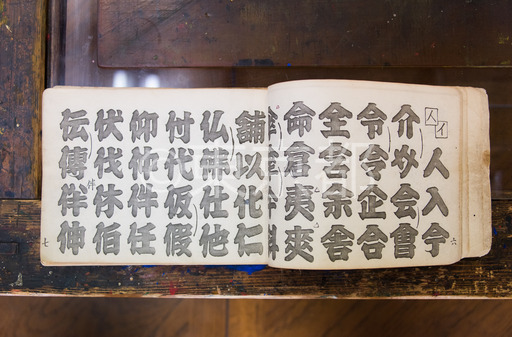 人 イ
人入今
介会會
令令企合
全余舎
命倉夷夾
六
舗以化仁
仏佛仕他
付代仮假
仰件任
伏伐休伯
伝傳伴伸
七